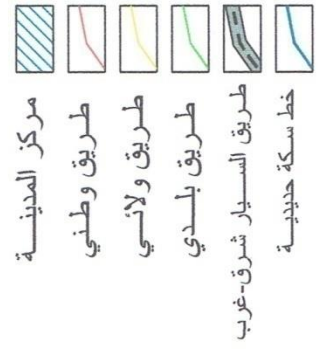 مركز المدينة
طريق وطني
طريق ولائي
طريق بلدي
طريق السيار شرق-غرب
خط سكة حديدية